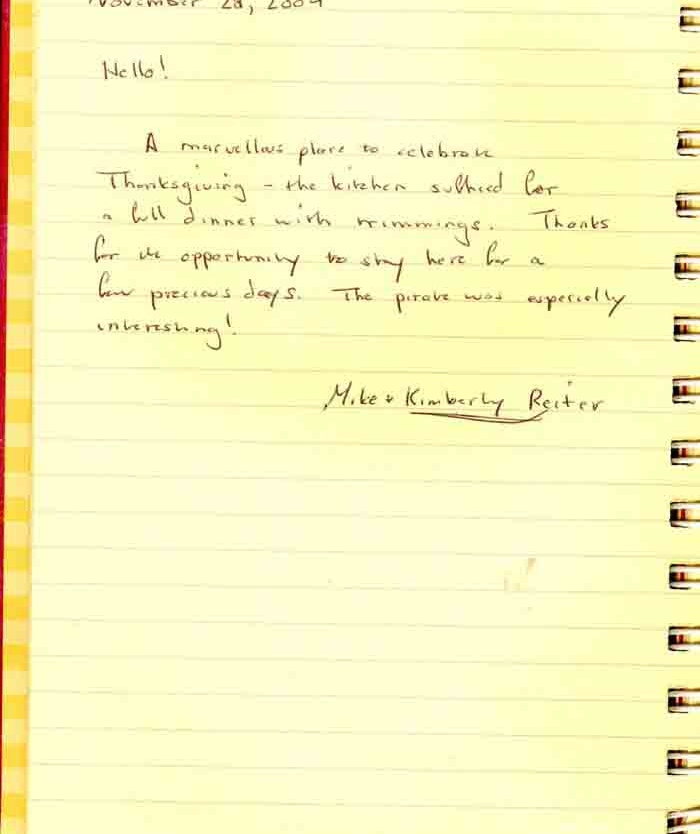 November 28, 2009
Hello!
A marvellous place to celebrate
Thanksgiving - the kitchen sufficed for
a full dinner with trimmings. Thanks
for the opportunity to stay here for a
few precious days. The pirate was especially
interesting!
Mike + Kimberly Reiter